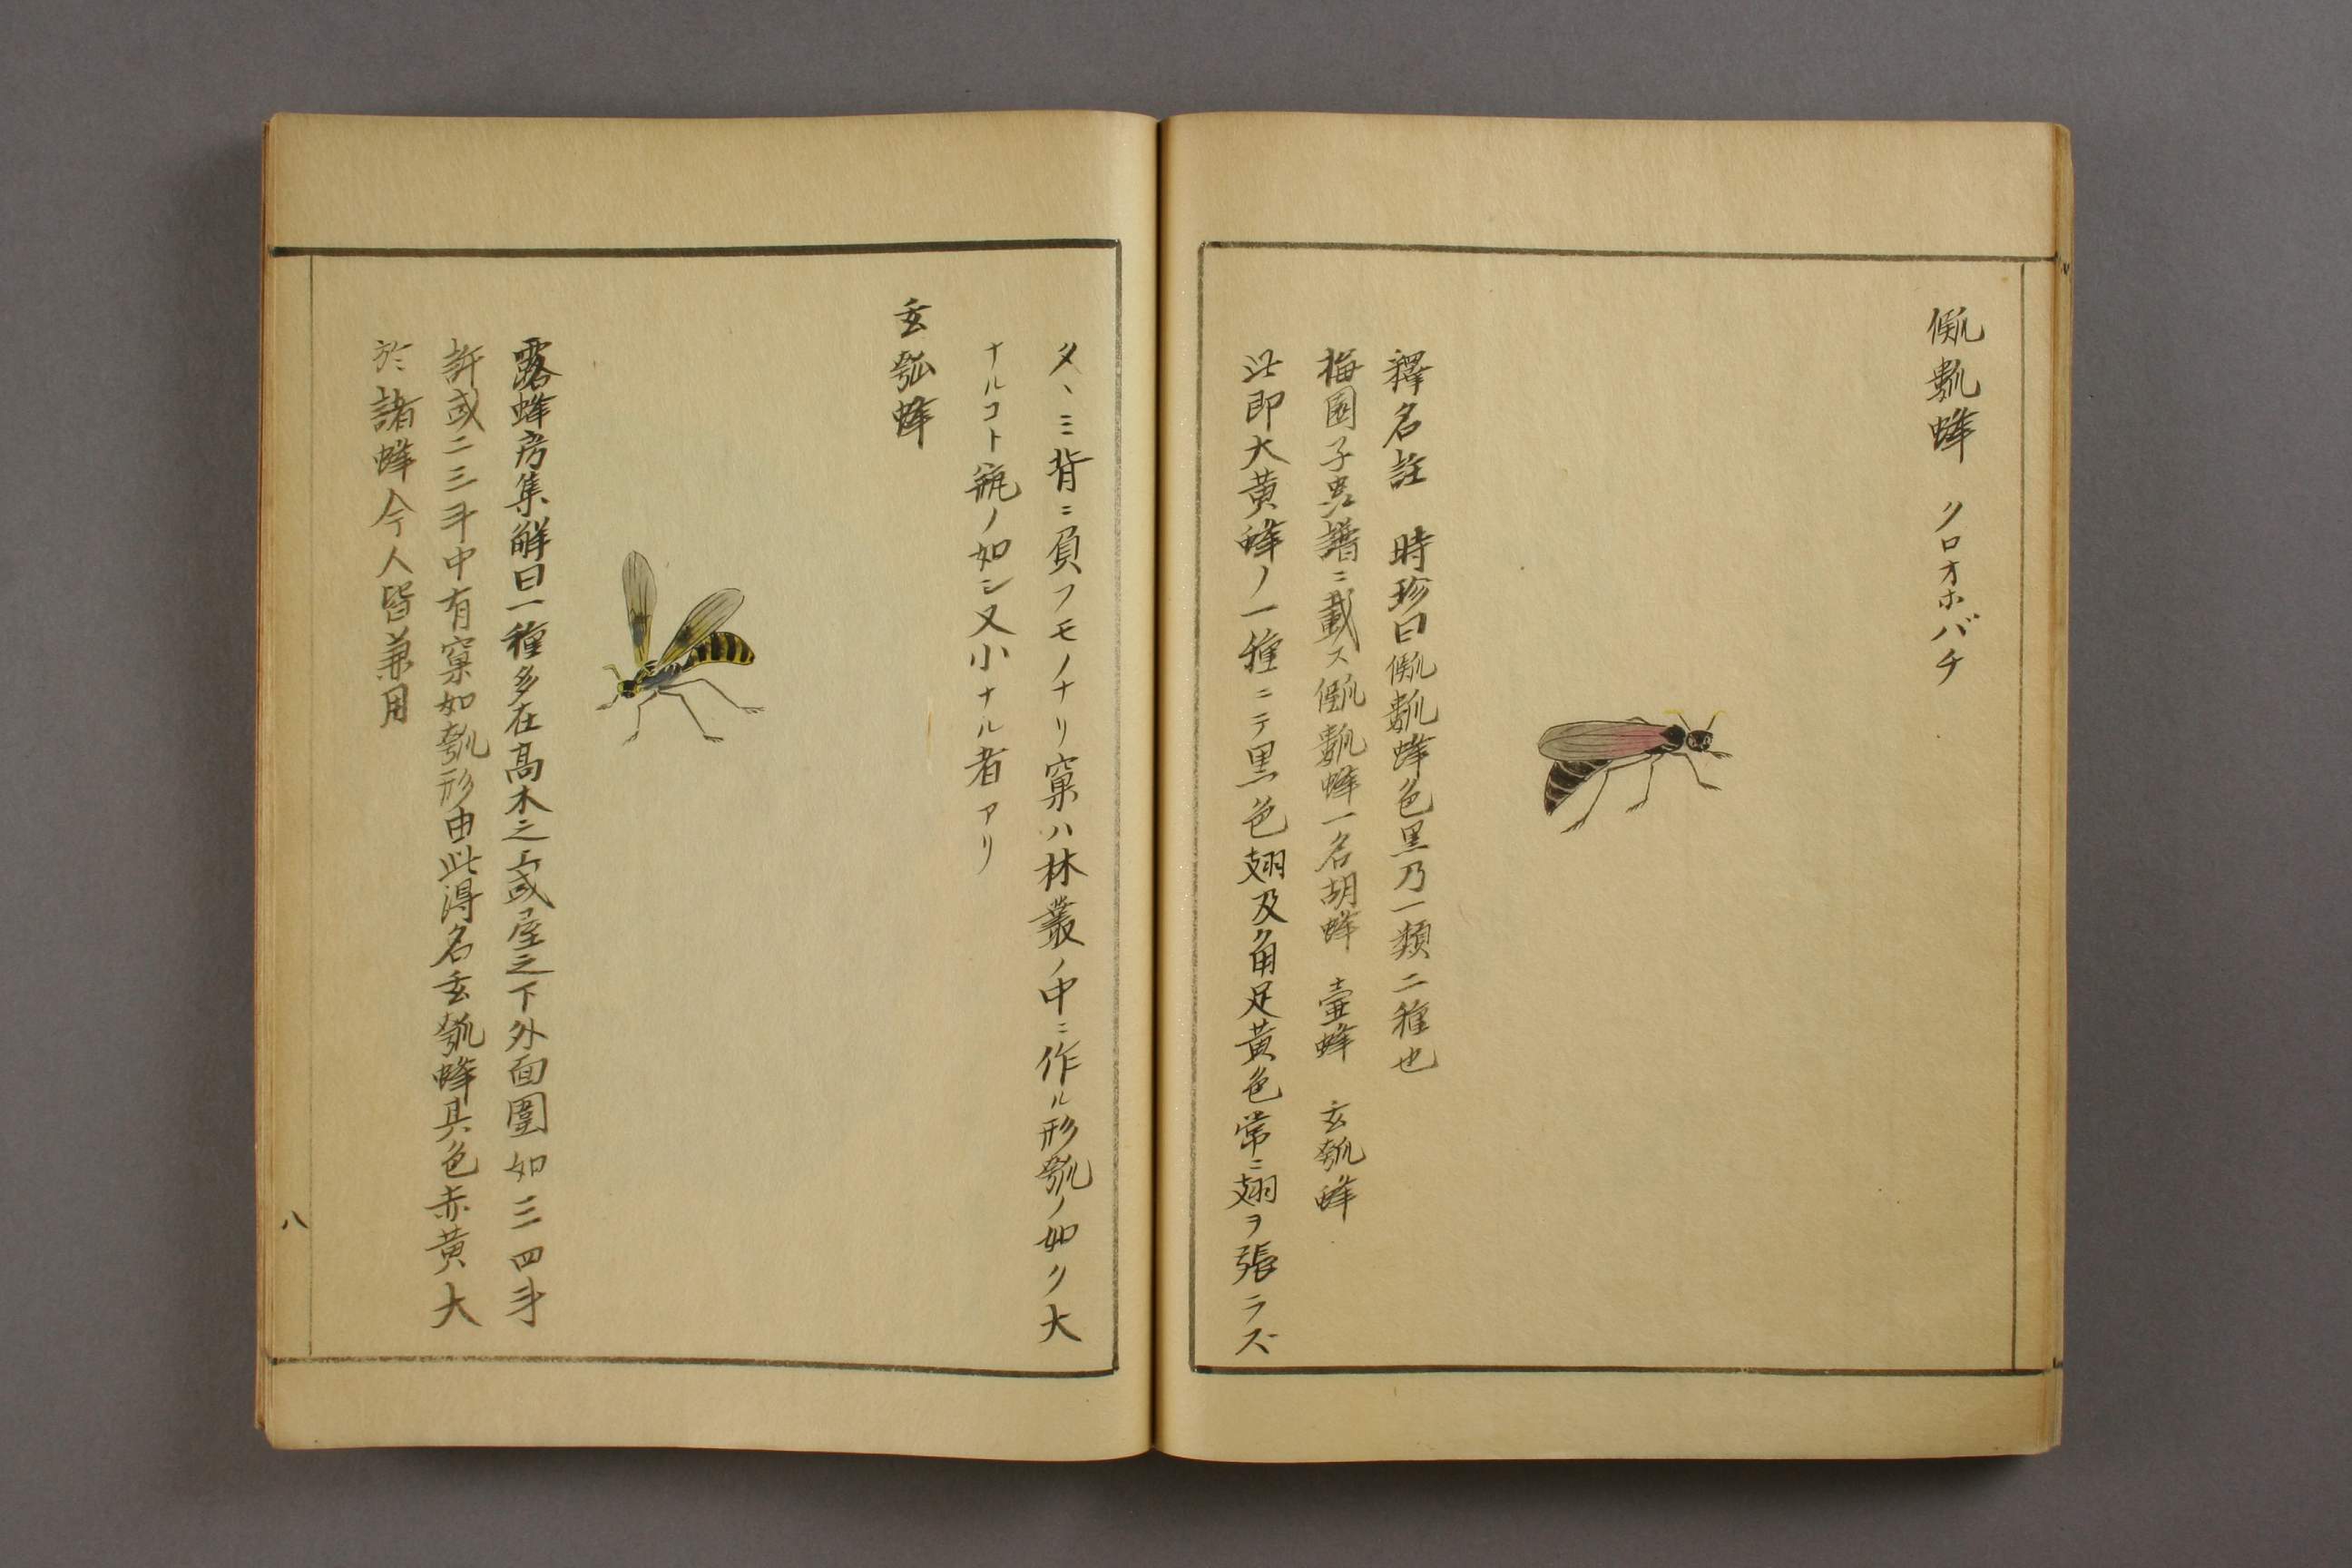 㼋㼌蜂 クロオホバチ
釋名註 時珍曰㼋㼌蜂色黒乃一類二種也
梅園子虫譜ニ載ス㼋㼌蜂一名胡蜂 壷蜂 玄瓠蜂
此即大黄蜂ノ一種ニテ黒色翅及ク角足黄色常ニ翅ヲ張ラズ
タヽミ背ニ負フモノナリ窠ハ林叢ノ中ニ作ル形瓠ノ如ク大
ナルコト瓶ノ如シ又小ナル者アリ
玄瓠蜂
露蜂房集解曰一種多在髙木之上或屋之下外面圍如三四斗
許或二三斗中有窠如瓠形由此得名玄瓠蜂其色赤黄大
於諸蜂今人皆兼用
八